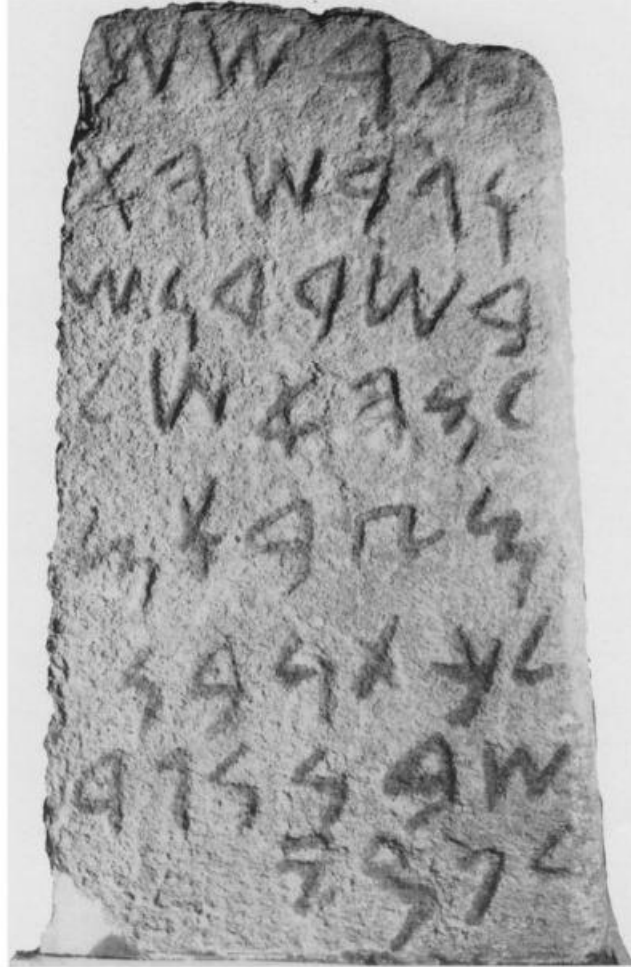 𐤁𐤕𐤓𐤔𐤔
𐤍𐤂𐤓𐤔𐤄𐤀
𐤁𐤔𐤓𐤃𐤍𐤔
𐤋𐤌𐤄𐤀𐤔𐤋
𐤌𐤑𐤁𐤀𐤌
𐤋𐤊𐤕𐤍𐤁𐤍
𐤔𐤁𐤍𐤍𐤂𐤓
𐤋𐤐𐤌𐤉